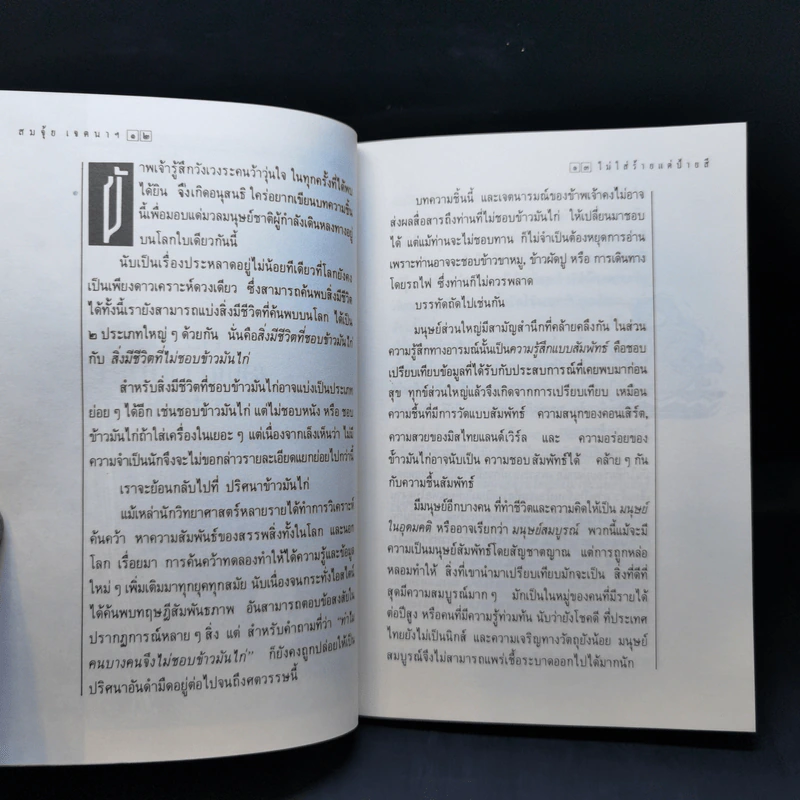 สมจุ้ย เจตนาฯ ๑๒
ข้าพเจ้ารู้สึกวังเวงระคนว้าวุ่นใจ ในทุกครั้งที่ได้พบ
ได้ยิน จึงเกิดอนุสนธิ ใคร่อยากเขียนบทความชิ้น
นี้เพื่อมอบแด่มวลมนุษย์ชาติผู้กำลังเดินหลงทางอยู่
บนโลกใบเดียวกันนี้
นับเป็นเรื่องประหลาดอยู่ไม่น้อยทีเดียวที่โลกยังคง
เป็นเพียงดาวเคราะห์ดวงเดียว ซึ่งสามารถค้นพบสิ่งมีชีวิต
ได้ทั้งนี้เรายังสามารถแบ่งสิ่งมีชีวิตที่ค้นพบบนโลก ได้เป็น
๒ ประเภทใหญ่ ๆ ด้วยกัน นั่นคือสิ่งมีชีวิตที่ชอบข้าวมันไก่
กับ สิ่งมีชีวิตที่ไม่ชอบข้าวมันไก่
สำหรับสิ่งมีชีวิตที่ชอบข้าวมันไก่อาจแบ่งเป็นประเภท
ย่อย ๆ ได้อีก เช่นชอบข้าวมันไก่ แต่ไม่ชอบหนัง หรือ ชอบ
ข้าวมันไก่ถ้าใส่เครื่องในเยอะ ๆ แต่เนื่องจากเล็งเห็นว่า ไม่มี
ความจำเป็นนักจึงจะไม่ขอกล่าวรายละเอียดแยกย่อยไปกว่านี้
เราจะย้อนกลับไปที่ ปริศนาข้าวมันไก่
แม้เหล่านักวิทยาศาสตร์หลายรายได้ทำการวิเคราะห์
ค้นคว้า หาความสัมพันธ์ของสรรพสิ่งทั้งในโลก และนอก
โลก เรื่อยมา การค้นคว้าทดลองทำให้ได้ความรู้และข้อมูล
ใหม่ ๆ เพิ่มเติมมาทุกยุคทุกสมัย นับเนื่องจนกระทั่งไอสไตน์
ได้ค้นพบทฤษฎีสัมพันธภาพ อันสามารถตอบข้อสงสัยใน
ปรากฏการณ์หลาย ๆ สิ่ง แต่ สำหรับคำถามที่ว่า "ทำไม
คนบางคนจึงไม่ชอบข้าวมันไก่" ก็ยังคงถูกปล่อยให้เป็น
ปริศนาอันดำมืดอยู่ต่อไปจนถึงศตวรรษนี้
๑๓ ไม่ใส่ร้ายแต่ป้ายสี
บทความชิ้นนี้ และเจตนารมณ์ของข้าพเจ้าคงไม่อาจ
ส่งผลสื่อสารถึงท่านที่ไม่ชอบข้าวมันไก่ ให้เปลี่ยนมาชอบ
ได้ แต่แม้ท่านจะไม่ชอบทาน ก็ไม่จำเป็นต้องหยุดการอ่าน
เพราะท่านอาจจะชอบข้าวขาหมู, ข้าวผัดปู หรือ การเดินทาง
โดยรถไฟ ซึ่งท่านก็ไม่ควรพลาด
บรรทัดถัดไปเช่นกัน
มนุษย์ส่วนใหญ่มีสามัญสำนึกที่คล้ายคลึงกัน ในส่วน
ความรู้สึกทางอารมณ์นั้นเป็นความรู้สึกแบบสัมพัทธ์ คือชอบ
เปรียบเทียบข้อมูลที่ได้รับกับประสบการณ์ที่เคยพบมาก่อน
สุข ทุกข์ส่วนใหญ่แล้วจึงเกิดจากการเปรียบเทียบ เหมือน
ความชื้นที่มีการวัดแบบสัมพัทธ์ ความสนุกของคอนเสิร์ต,
ความสวยของมิสไทยแลนด์เวิร์ล และ ความอร่อยของ
ข้าวมันไก่อาจนับเป็น ความชอบสัมพัทธ์ได้ คล้าย ๆ กัน
กับความชื้นสัมพัทธ์
มีมนุษย์อีกบางคน ที่ทำชีวิตและความคิดให้เป็น มนุษย์
ในอุดมคติ หรืออาจเรียกว่า มนุษย์สมบูรณ์ พวกนี้แม้จะมี
ความเป็นมนุษย์สัมพัทธ์โดยสัญชาตญาณ แต่การถูกหล่อ
หลอมทำให้ สิ่งที่เขานำมาเปรียบเทียบมักจะเป็น สิ่งที่ดีที่
สุดมีความสมบูรณ์มาก ๆ มักเป็นในหมู่ของคนที่มีรายได้
ต่อปีสูง หรือคนที่มีความรู้ท่วมท้น นับว่ายังโชคดี ที่ประเทศ
ไทยยังไม่เป็นนิกส์ และความเจริญทางวัตถุยังน้อย มนุษย์
สมบูรณ์จึงไม่สามารถแพร่เชื้อระบาดออกไปได้มากนัก